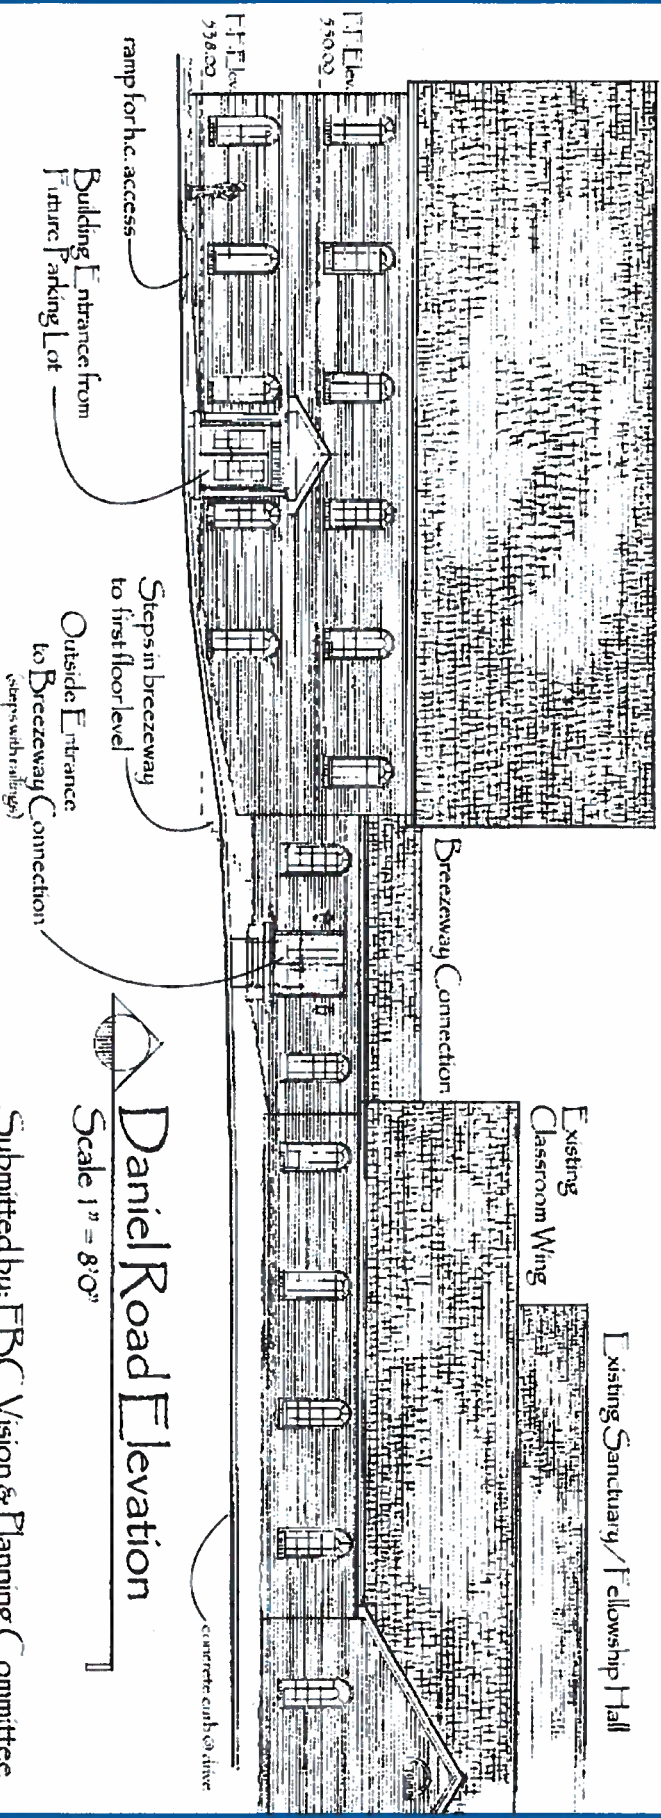 F.F. Elev.
550.00
F.F. Elev.
538.00
ramp for h.c. access
Building Entrance from
Future Parking Lot
Steps in breezeway
to first floor level
Outside Entrance
to Breezeway Connection
(steps with railings)
Breezeway Connection
Existing
Classroom Wing
Existing Sanctuary/Fellowship Hall
concrete curb @ drive
Daniel Road Elevation
Scale 1" = 8'0"
Submitted by: FBC Vision & Planning Committee